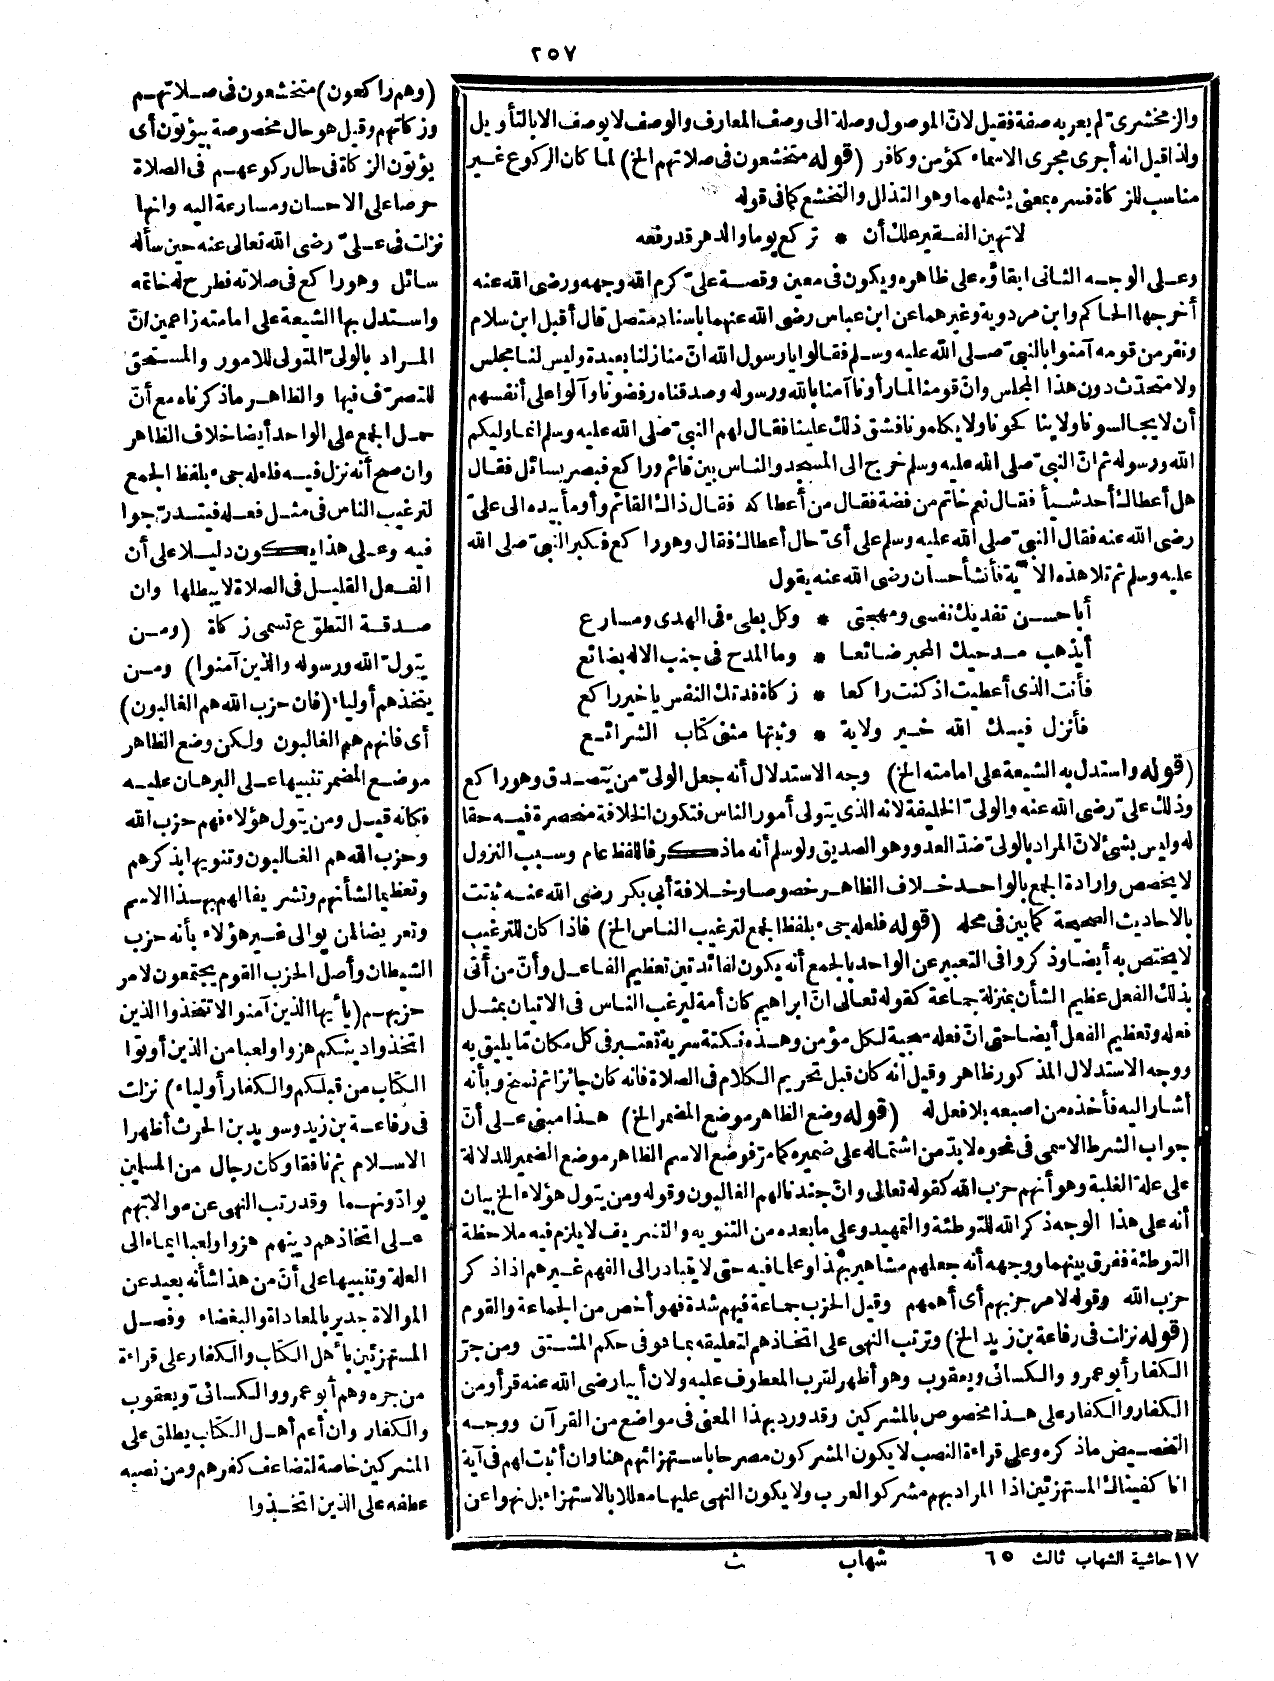 ٢٥٧
والزمخشرىّ لم يعربه صفة فقيل لانّ الموصول وصلة الى وصف المعارف والوصف لا يوصف الا بالتأويل
ولذا قيل انه أجرى مجرى الاسماء كمؤمن وكافر (قوله متخشعون فى صلاتهم الخ) لما كان الركوع غير
مناسب للزكاة فسره بمعنى يشملهما وهو التذلل والتخشع كما فى قوله
لا تهين الفقير علك أن * تركع يوما والدهر قد رفعه
وعلى الوجه الثانى ابقاؤه على ظاهره ويكون فى معين وقصة علىّ كرم الله وجهه ورضى الله عنه
أخرجها الحاكم وابن مردويه وغيرهما عن ابن عباس رضى الله عنهما باسناد متصل قال أقبل ابن سلام
ونفر من قومه آمنوا بالنبىّ صلى الله عليه وسلم فقالوا يا رسول الله انّ منازلنا بعيدة وليس لنا مجلس
ولا متحدّث دون هذا المجلس وانّ قومنا لما رأونا آمنا بالله ورسوله وصدقناه رفضونا وآلوا على أنفسهم
أن لا يجالسونا ولا يناكحونا ولا يكلمونا فشق ذلك علينا فقال لهم النبىّ صلى الله عليه وسلم انما وليكم
الله ورسوله ثم انّ النبىّ صلى الله عليه وسلم خرج الى المسجد والناس بين قائم وراكع فبصر بسائل فقال
هل أعطاك أحد شيأ فقال نعم خاتم من فضة فقال من أعطاكه فقال ذاك القائم وأومأ بيده الى علىّ
رضى الله عنه فقال النبىّ صلى الله عليه وسلم على أىّ حال أعطاك فقال وهو راكع فكبر النبىّ صلى الله
عليه وسلم ثم تلا هذه الآية فأنشأ حسان رضى الله عنه يقول
أبا حسن تفديك نفسى ومهجتى * وكل بطىء فى الهدى ومسارع
أيذهب مدحيك المحبر ضائعا * وما المدح فى جنب الاله بضائع
فأنت الذى أعطيت اذ كنت راكعا * زكاة فدتك النفس يا خير راكع
فأنزل فيك الله خير ولاية * وثبتها مثنى كتاب الشرائع
(قوله واستدل به الشيعة على امامته الخ) وجه الاستدلال أنه جعل الولىّ من يتصدق وهو راكع
وذلك علىّ رضى الله عنه والولىّ الخليفة لانه الذى يتولى أمور الناس فتكون الخلافة منحصرة فيه حقا
له وليس بشئ لانّ المراد بالولىّ ضدّ العدو وهو الصديق ولو سلم أنه ما ذكر فاللفظ عام وسبب النزول
لا يخصص وارادة الجمع بالواحد خلاف الظاهر خصوصا وخلافة أبى بكر رضى الله عنه ثبتت
بالاحاديث الصحيحة كما بين فى محله (قوله فلعله جىء بلفظ الجمع لترغيب الناس الخ) فاذا كان للترغيب
لا يختص به أيضا وذكروا فى التعبير عن الواحد بالجمع أنه يكون لفائدتين تعظيم الفاعل وأنّ من أتى
بذلك الفعل عظيم الشأن بمنزلة جماعة كقوله تعالى انّ ابراهيم كان أمة ليرغب الناس فى الاتيان بمثل
فعله وتعظيم الفعل أيضا حتى انّ فعله سجية لكل مؤمن وهذه نكتة سرية تعتبر فى كل مكان بما يليق به
ووجه الاستدلال المذكور ظاهر وقيل انه كان قبل تحريم الكلام فى الصلاة فانه كان جائزا ثم نسخ وبأنه
أشار اليه فأخذه من اصبعه بلا فعل له (قوله وضع الظاهر موضع المضمر الخ) هذا مبنى على أنّ
جواب الشرط الاسمى فى نحوه لا بدّ من اشتماله على ضميره كما مرّ فوضع الاسم الظاهر موضع الضمير للدلالة
على علة الغلبة وهو أنهم حزب الله كقوله تعالى وانّ جندنا لهم الغالبون وقوله ومن يتول هؤلاء الخ بيان
أنه على هذا الوجه ذكر الله للتوطئة والتمهيد وعلى ما بعده من التنويه والتشريف لا يلزم فيه ملاحظة
التوطئة ففرق بينهما ووجهه أنه جعلهم مشاهير بهذا وعلما فيه حتى لا يتبادر الى الفهم غيرهم اذا ذكر
حزب الله وقوله لامر حزبهم أى أهمهم وقيل الحزب جماعة فيهم شدة فهو أخص من الجماعة والقوم
(قوله نزلت فى رفاعة بن زيد الخ) وترتب النهى على اتخاذهم لتعليقه بما هو فى حكم المشتق ومن جرّ
الكفار أبو عمرو والكسائى ويعقوب وهو أظهر لقرب المعطوف عليه ولان أبيا رضى الله عنه قرأ ومن
الكفار والكفار على هذا مخصوص بالمشركين وقد ورد بهذا المعنى فى مواضع من القرآن ووجه
التخصيص ما ذكره وعلى قراءة النصب لا يكون المشركون مصرحا باستهزائهم هنا وان أثبت لهم فى آية
انا كفيناك المستهزئين اذا المراد بهم مشركو العرب ولا يكون النهى عليها معللا بالاستهزاء بل نهوا عن
(وهم راكعون) متخشعون فى صلاتهم
وزكاتهم وقيل هو حال مخصوصة بيؤتون أى
يؤتون الزكاة فى حال ركوعهم فى الصلاة
حرصا على الاحسان ومسارعة اليه وانها
نزلت فى علىّ رضى الله تعالى عنه حين سأله
سائل وهو راكع فى صلاته فطرح له خاتمه
واستدل بها الشيعة على امامته زاعمين انّ
المراد بالولىّ المتولى للامور والمستحق
للتصرّف فيها والظاهر ما ذكرناه مع أنّ
حمل الجمع على الواحد أيضا خلاف الظاهر
وان صح أنه نزل فيه فلعله جىء بلفظ الجمع
لترغيب الناس فى مثل فعله فيندرجوا
فيه وعلى هذا يكون دليلا على أن
الفعل القليل فى الصلاة لا يبطلها وان
صدقة التطوّع تسمى زكاة (ومن
يتولّ الله ورسوله والذين آمنوا) ومن
يتخذهم أولياء (فان حزب الله هم الغالبون)
أى فانهم هم الغالبون ولكن وضع الظاهر
موضع المضمر تنبيها على البرهان عليه
فكانه قيل ومن يتول هؤلاء فهم حزب الله
وحزب الله هم الغالبون وتنويها بذكرهم
وتعظيما لشأنهم وتشريفا لهم بهذا الاسم
وتعريضا لمن يوالى غير هؤلاء بأنه حزب
الشيطان وأصل الحزب القوم يجتمعون لامر
حزبهم (يا أيها الذين آمنوا لا تتخذوا الذين
اتخذوا دينكم هزوا ولعبا من الذين أوتوا
الكتاب من قبلكم والكفار أولياء) نزلت
فى رفاعة بن زيد وسويد بن الحرث أظهرا
الاسلام ثم نافقا وكان رجال من المسلمين
يوادّونهما وقد رتب النهى عن موالاتهم
على اتخاذهم دينهم هزوا ولعبا ايماء الى
العلة وتنبيها على أنّ من هذا شأنه بعيد عن
الموالاة جدير بالمعاداة والبغضاء وفصل
المستهزئين بأهل الكتاب والكفار على قراءة
من جره وهم أبو عمرو والكسائىّ ويعقوب
والكفار وان أعم أهل الكتاب يطلق على
المشركين خاصة لتضاعف كفرهم ومن نصبه
عطفه على الذين اتخذوا
١٧ حاشية الشهاب ثالث ٦٥ شهاب ث